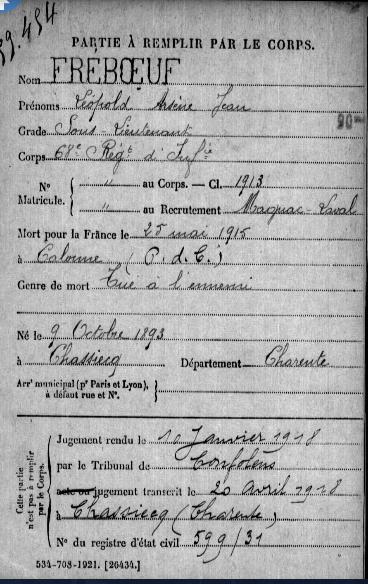 59.454
PARTIE À REMPLIR PAR LE CORPS.
Nom FREBŒUF
Prénoms Léopold Arsène Jean
Grade Sous-Lieutenant
90
Corps 68e Régt d'Infie
N° Matricule. { " au Corps. — Cl. 1913
" au Recrutement Magnac-Laval
Mort pour la France le 25 mai 1915
à Calonne (P. d. C.)
Genre de mort Tué à l'ennemi
Né le 9 Octobre 1893
à Chassiecq Département Charente
Arrt municipal (pr Paris et Lyon), à défaut rue et N°. }
Cette partie n'est pas à remplir par le Corps.
Jugement rendu le 10 Janvier 1918
par le Tribunal de Confolens
acte ou jugement transcrit le 20 avril 1918
à Chassiecq (Charente)
N° du registre d'état civil 599/31
534-708-1921. [26434.]